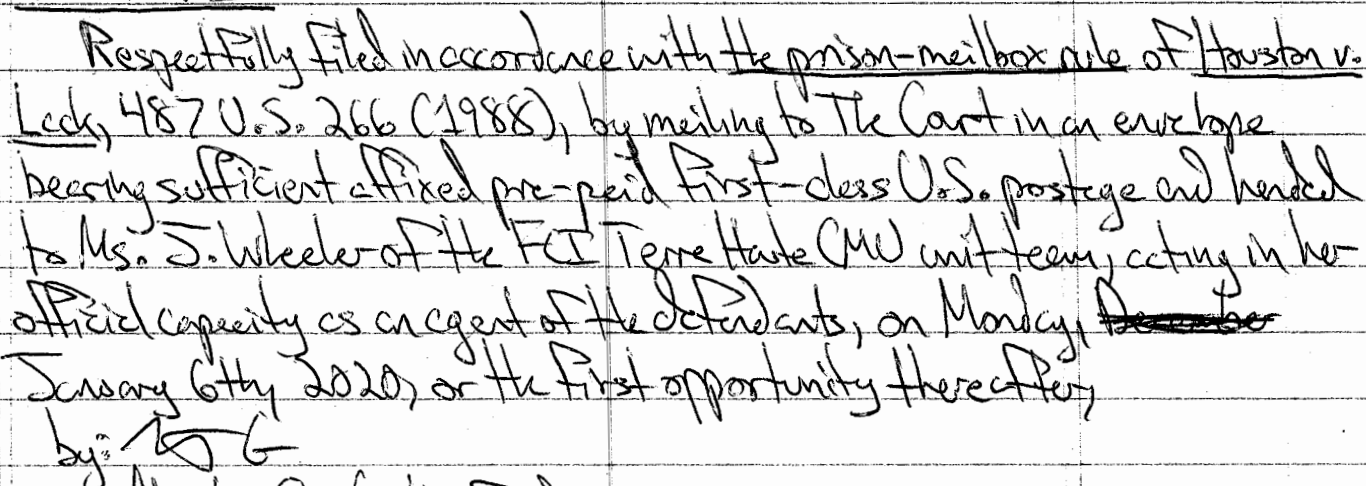 Respectfully filed in accordance with the prison-mailbox rule of Houston v.
Lack, 487 U.S. 266 (1988), by mailing to The Court in an envelope
bearing sufficient affixed pre-paid first-class U.S. postage and handed
to Ms. J. Wheeler of the FCI Terre Haute CMU unit team, acting in her
official capacity as an agent of the defendants, on Monday, December
January 6th, 2020, or the first opportunity thereafter,
by: